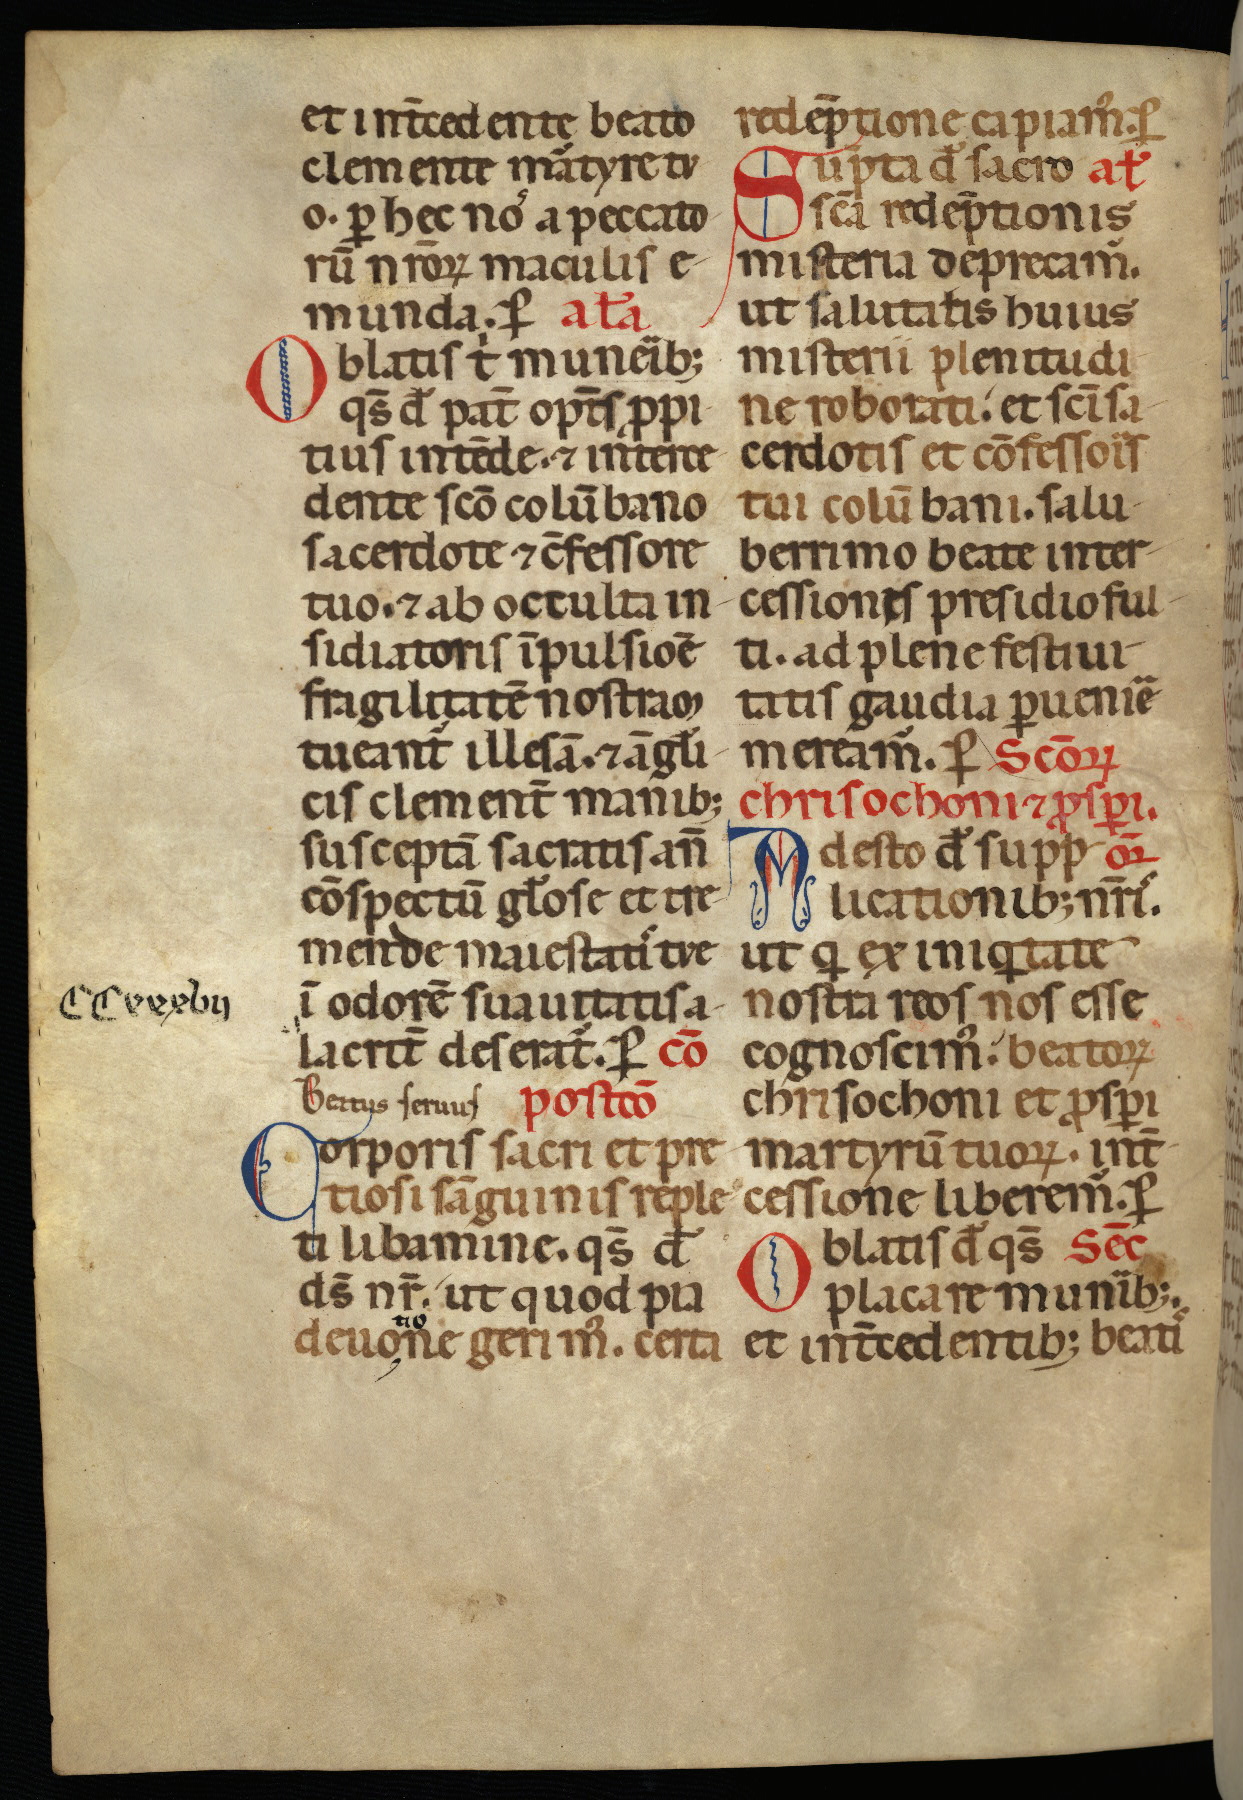 et int̄cedente beato
clemente mar̄tyre tu
o. ꝑ hec noˢ a peccato
rū nr̄oꝝ maculis e-
munda. ꝑ al̄a
Oblatis t̄ munerib;
qs̄ d̄ pat̄ opt̄s ꝓpi
tius intēde. ⁊ interce
dente scō colūbano
sacerdote ⁊ c̄fessore
tuo. ⁊ ab occulta in-
sidiatoris īpulsiōe
fragilitatē nostram
tueant̄ illesā. ⁊ āgl̄i-
cis clement̄ manib;
susceptā sacratis an̄
cōspectū gl̄ose et tre-
mende maiestatiˢ tue
CCxxxvij
ī odorē suauitatis a-
lacrit̄ deserat̄. ꝑ cō
Bertus seruus postcō
Corporis sacri et pre
tiosi sāguinis reple-
ti libamine. qs̄ d̄
ds̄ nr̄. ut quod pia
deuotione gerim᷒. certa
redēptione capiam᷒. ꝑ
Sūpta d̄ sacro al̄
scā redēptionis
misteria deprecam̄.
ut salutaris huius
misterii plenitudi-
ne roborati. et scī sa-
cerdotis et cōfessoris
tui colūbani. salu-
berrimo beate inter-
cessionis presidio ful-
ti. ad plene festiui-
tatis gaudia ꝑueniē
meream̄. ꝑ Scōꝝ
chrisochoni ⁊ ꝓsꝑi.
Adesto d̄ supp- or̄
licationib; nr̄iˢ.
ut q ex iniqtate
nostra reos nos esse
cognoscim᷒. beatoꝝ
chrisochoni et ꝓsꝑi
martyrū tuoꝝ. int̄-
cessione liberem̄. ꝑ
Oblatis d̄ qs̄ Sēc
placare munib;.
et int̄cedentib; beatiˢ